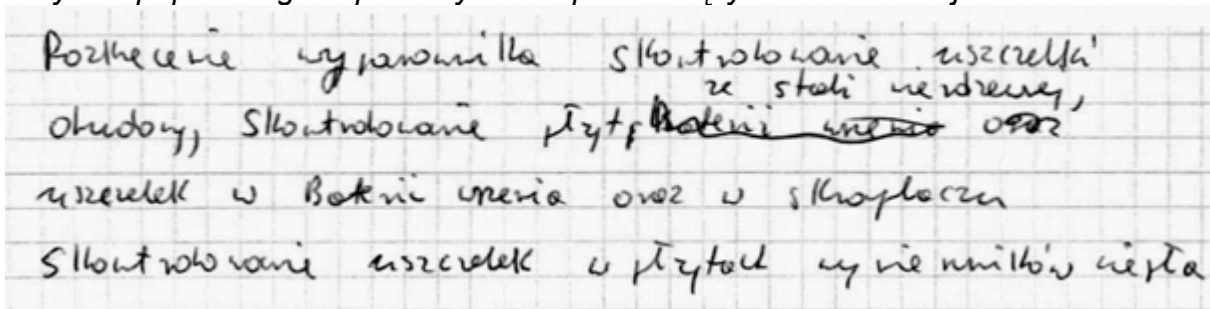 Rozkręcenie wyparownika skontrolowanie uszczelki
ze stali nierdzewnej,
obudowy, Skontrolowanie płyty oraz
uszczelek w Baterii wrzenia oraz w skraplaczu
Skontrolowanie uszczelek w płytach wymienników ciepła